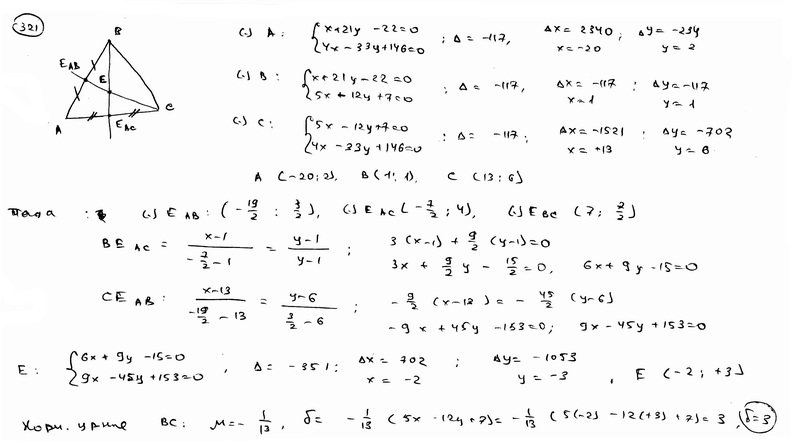 321
B
E_AB
E
A
C
E_AC
(.) A: { x+21y-22=0 4x-33y+146=0 ; Δ=-117, Δx=2340; Δy=-234 x=-20 y=2
(.) B: { x+21y-22=0 5x-12y+7=0 ; Δ=-117, Δx=-117; Δy=-117 x=1 y=1
(.) C: { 5x-12y+7=0 4x-33y+146=0 : Δ=-117; Δx=-1521; Δy=-702 x=+13 y=6
A (-20; 2), B(1; 1), C (13; 6)
Тогда : (.) E_AB: (-19/2 ; 3/2), (.) E_AC (-7/2; 4), (.) E_BC (7; 7/2)
BE_AC = (x-1)/(-7/2 - 1) = (y-1)/(4-1) ; 3(x-1) + 9/2 (y-1)=0
3x + 9/2 y - 15/2 =0, 6x+9y-15=0
CE_AB: (x-13)/(-19/2 - 13) = (y-6)/(3/2 - 6) ; -9/2 (x-13) = -45/2 (y-6)
-9x+45y-153=0; 9x-45y+153=0
E: { 6x+9y-15=0 9x-45y+153=0 , Δ=-351; Δx=702 ; Δy=-1053 x=-2 y=-3 , E (-2; +3)
Норм. ур-ние BC: M=-1/13, δ= -1/13 (5x-12y+7)=-1/13 (5(-2)-12(+3)+7)=3, δ=3